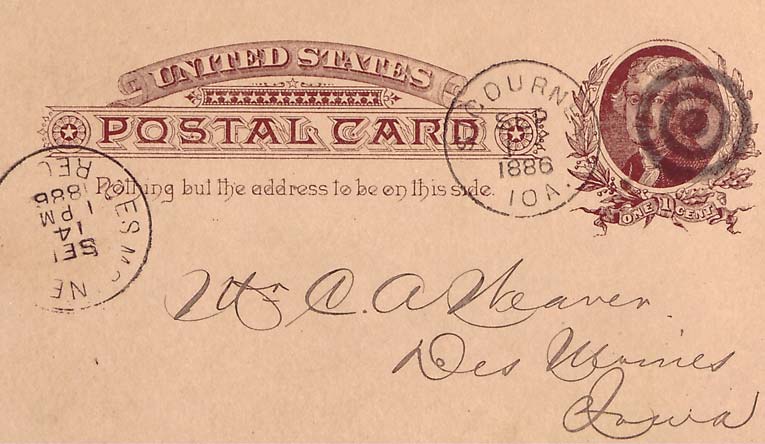 UNITED STATES
POSTAL CARD
Nothing but the address to be on this side.
ONE 1 CENT
1886
IOA.
DES MOINE
REC
SE
14
1 PM
1886
Mr C. A. Weaver.
Des Moines
Iowa